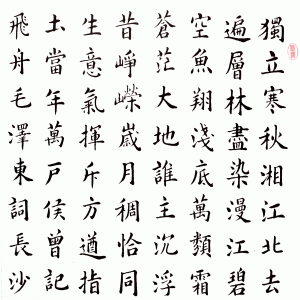 獨立寒秋湘江北去
遍層林盡染漫江碧
空魚翔淺底萬類霜
蒼茫大地誰主沉浮
昔崢嶸歲月稠恰同
生意氣揮斥方遒指
土當年萬戶侯曾記
飛舟毛澤東詞長沙